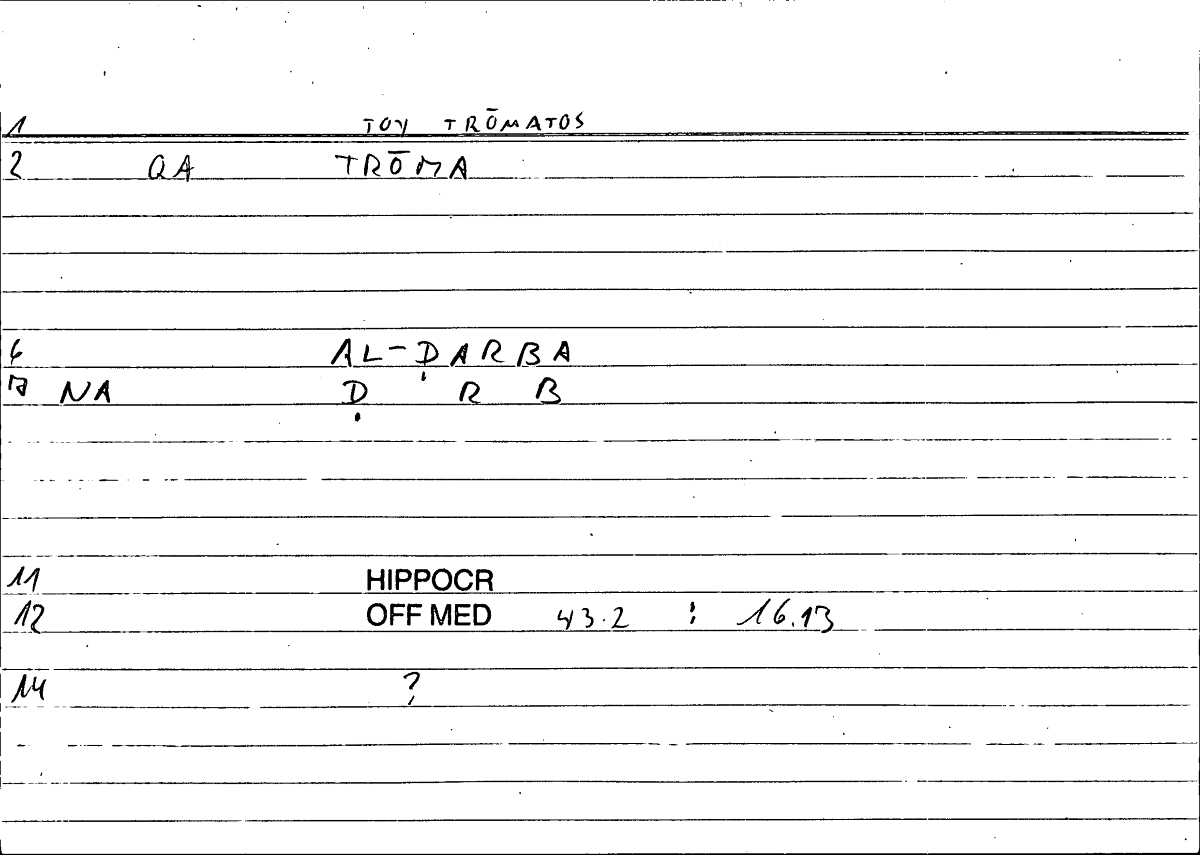 1 TOY TRŌMATOS
2 QA TRŌMA
6 AL-ḌARBA
7 NA Ḍ R B
11 HIPPOCR
12 OFF MED 43.2 : 16.13
14 ?